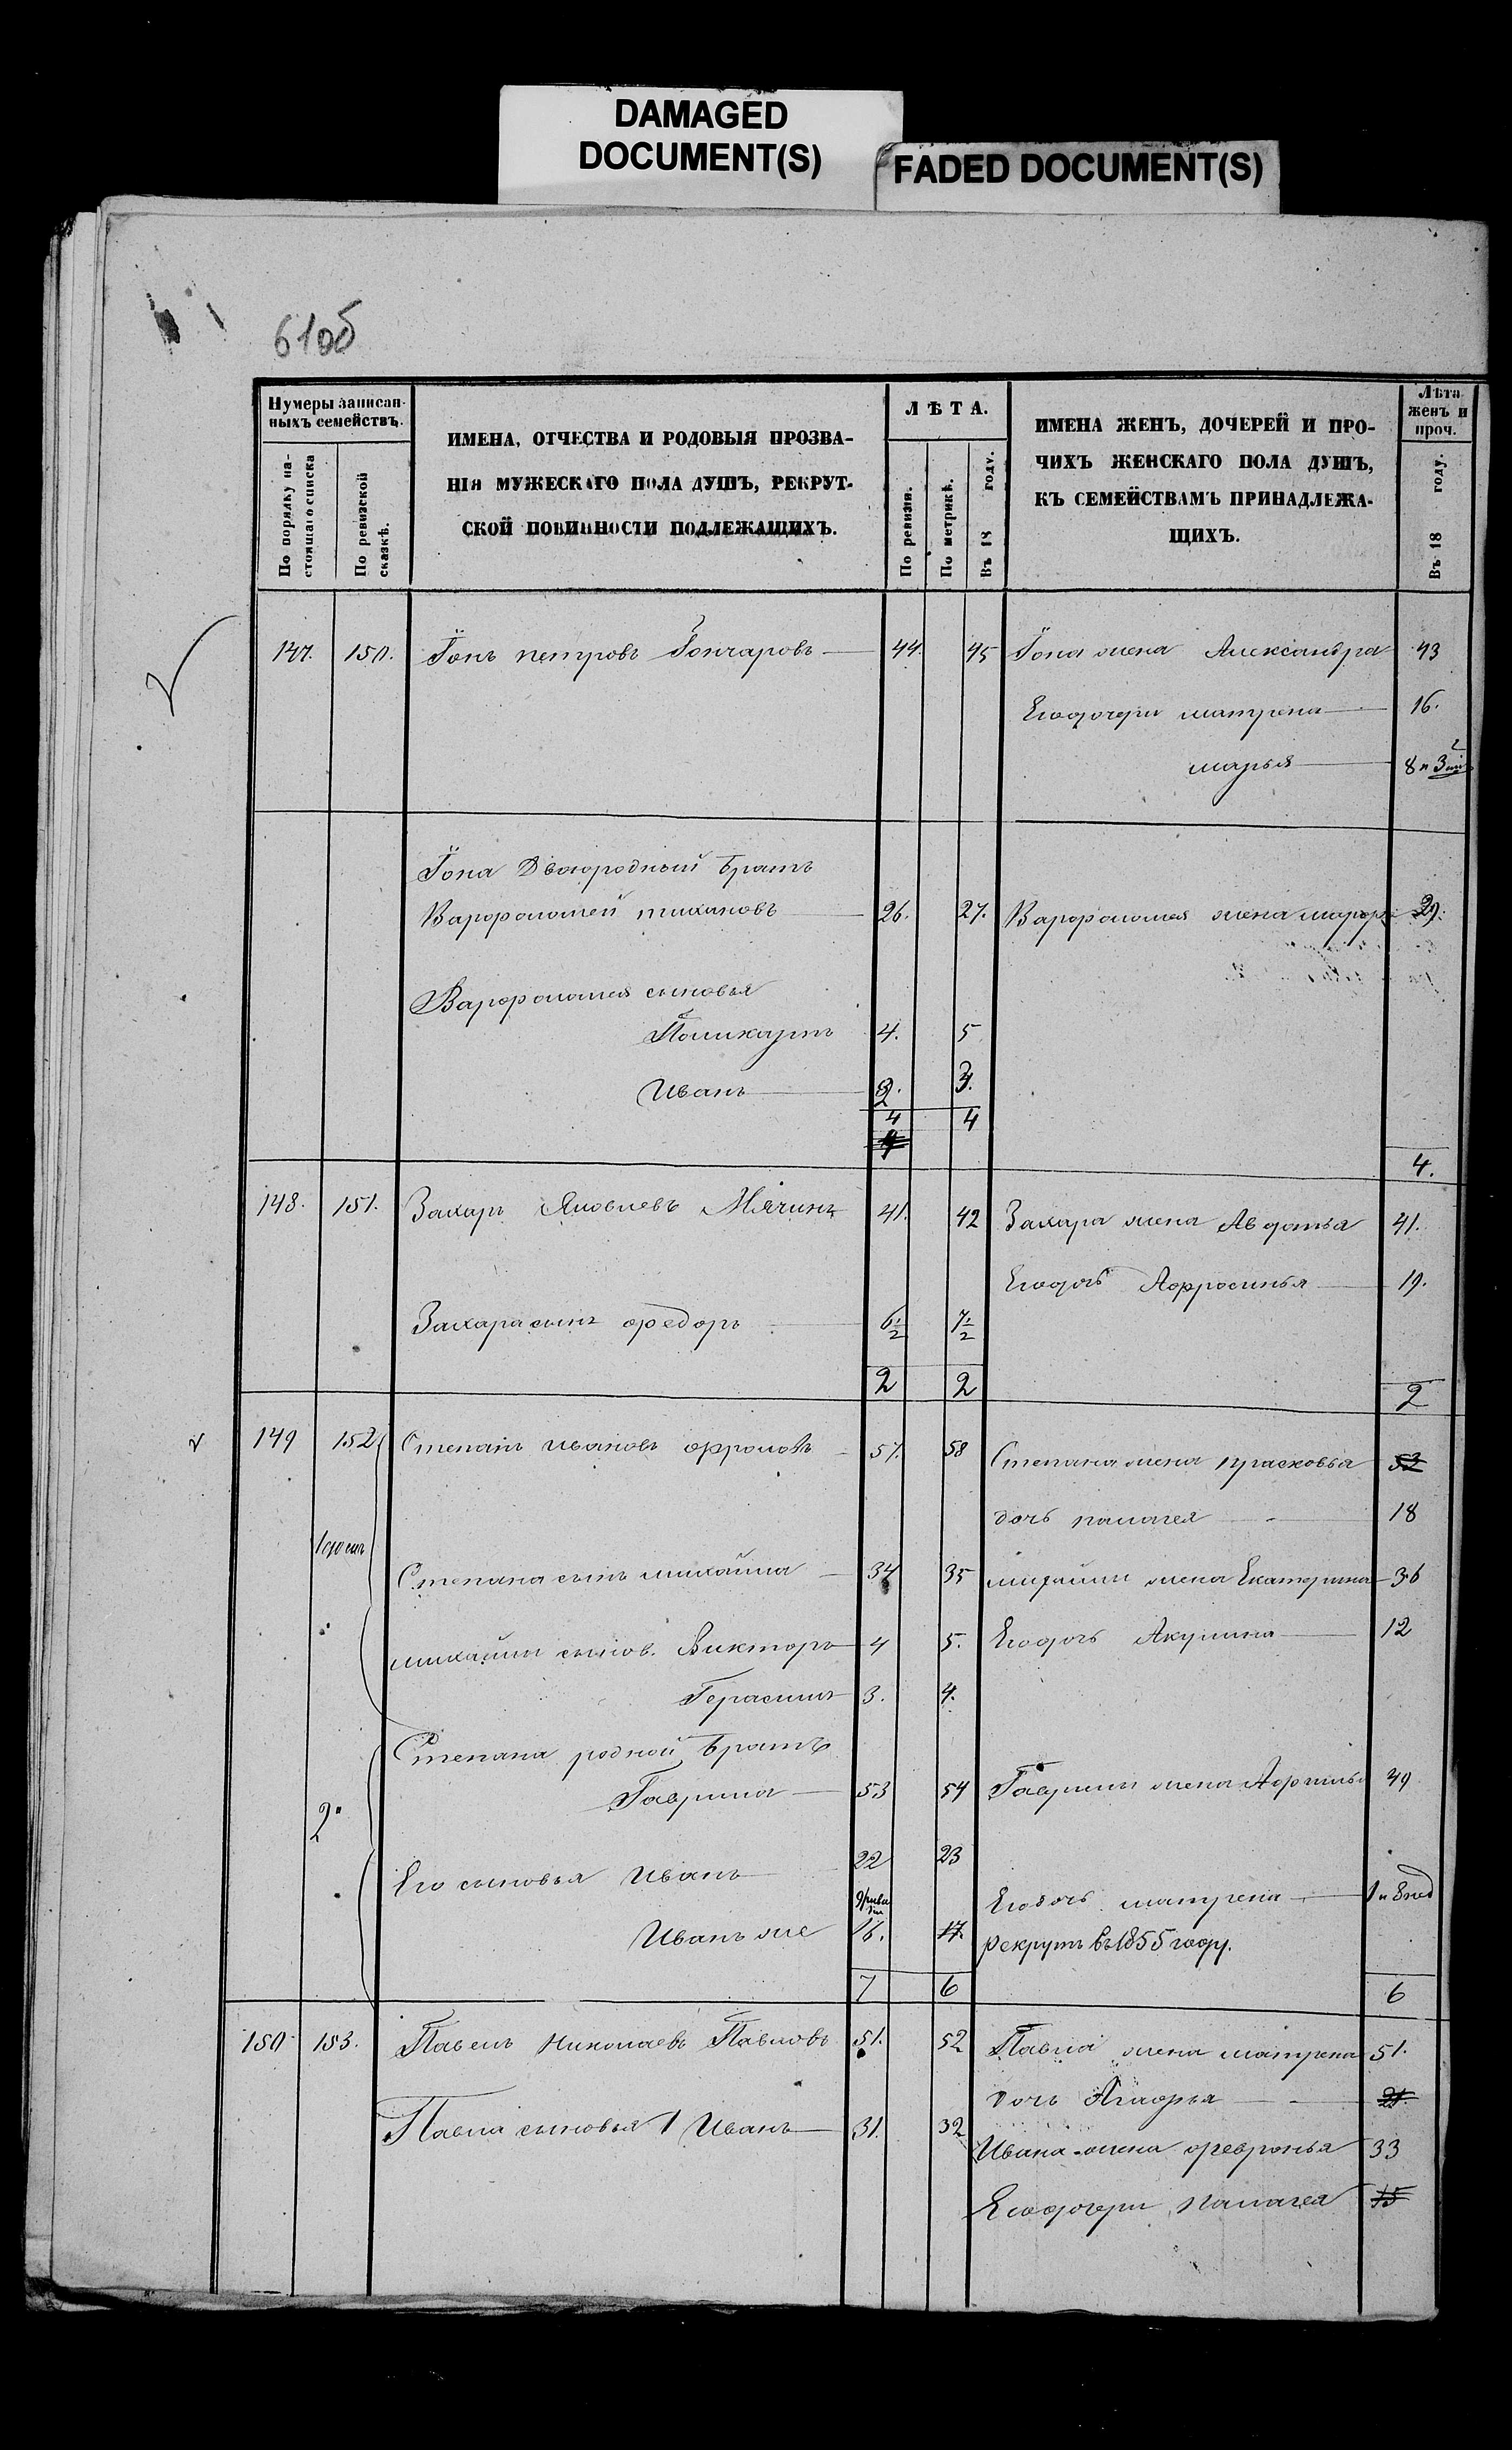 DAMAGED
DOCUMENT(S)
FADED DOCUMENT(S)
61об
Нумеры записан-
ныхъ семействъ.
По порядку на-
стоящаго списка
По ревизской
сказкѣ.
ИМЕНА, ОТЧЕСТВА И РОДОВЫЯ ПРОЗВА-
НІЯ МУЖЕСКАГО ПОЛА ДУШЪ, РЕКРУТ-
СКОЙ ПОВИННОСТИ ПОДЛЕЖАЩИХЪ.
ЛѢТА.
По ревизіи.
По метрикѣ.
Въ 18 году.
ИМЕНА ЖЕНЪ, ДОЧЕРЕЙ И ПРО-
ЧИХЪ ЖЕНСКАГО ПОЛА ДУШЪ,
КЪ СЕМЕЙСТВАМЪ ПРИНАДЛЕЖА-
ЩИХЪ.
Лѣта
женъ и
проч.
Въ 18 году.
147. 150. Іонъ петровъ Гончаровъ 44. 45 Іона жена Александра 43
Его дочери матрена 16.
марья 8 и 3
Іона Двоюродный братъ
Варфоломей тихановъ 26. 27. Варфоломея жена марфа 29.
Варфоломея сыновья
Поликарпъ 4. 5
Иванъ 2. 3.
4 4
4.
148. 151. Захаръ Яковлевъ Мячинъ 41. 42 Захара жена Авдотья 41.
Его дочь Афросинья 19.
Захара сынъ федоръ 6 1/2 7 1/2
2 2 2
149 152 Степанъ ивановъ фроловъ 57. 58 Степана жена прасковья 52
дочь палагея 18
1 сем
Степана сынъ михайла 34 35 михайлы жена Екатерина 36
михайлы сынов. Викторъ 4 5. Его дочь Акулина 12
Герасимъ 3. 4.
Степана родной братъ
2 Гаврила 53 54 Гаврилы жена 49
Его сыновья Иванъ 22 23
Его дочь матрена 1 и 8 нед
Иванъ же 16. 17. рекрутъ въ 1855 году.
7 6 6
150 153. Павелъ Николаевъ Павловъ 51. 52 Павла жена матрена 51.
дочь Агафья 21.
Павла сыновья 1 Иванъ 31. 32 Ивана жена февронья 33
Его дочери палагея 15